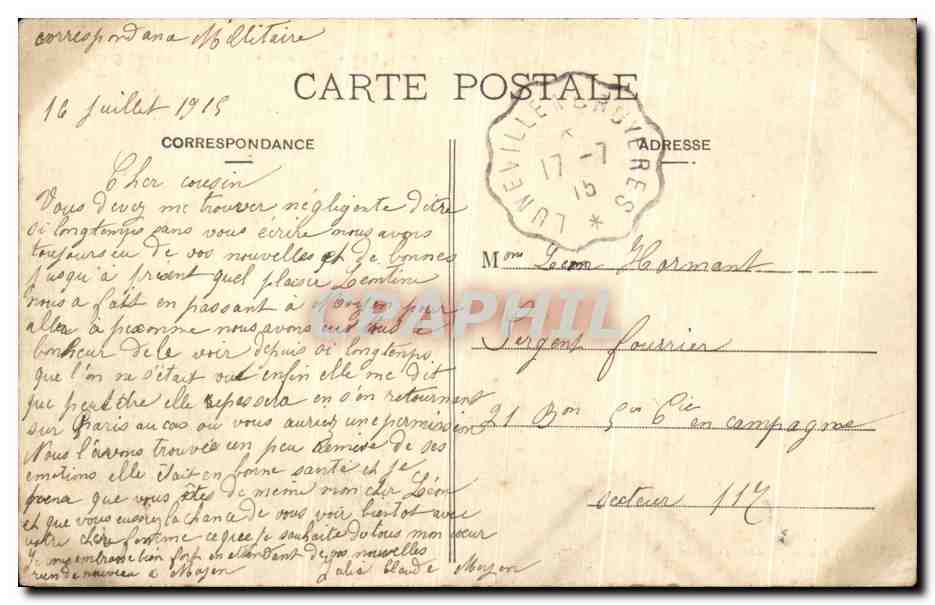 correspondance Militaire
CARTE POSTALE
16 Juillet 1915
CORRESPONDANCE
ADRESSE
LUNEVILLE A BRUYERES
17 -7
15
Cher cousin
Vous devez me trouver négligente d'être
si longtemps sans vous écrire nous avons
toujours eu de vos nouvelles et de bonnes
jusqu'à present quel plaisir Leontine
nous a fait en passant à Moyen pour
aller à nous avons eus tous le
bonheur de le voir depuis si longtemps
que l'on ne s'était vue enfin elle me dit
que peut être elle repassera en s'en retournant
sur Paris au cas où vous auriez une permission
Nous l'avons trouvée un peu remise de ses
emotions elle était en bonne santé et je
pense que vous êtes de même mon cher Léon
et que vous eussiez la chance de vous voir bientot avec
votre chère femme ce que je souhaite de tous mon coeur
Je vous embrasse bien fort en attendant de vos nouvelles
rien de nouveau a Moyen
Claude Moyen
Mons Leon Harmant
Sergent fourrier
21 Bon 5me Cie en campagne
secteur 117
CPAPHIL